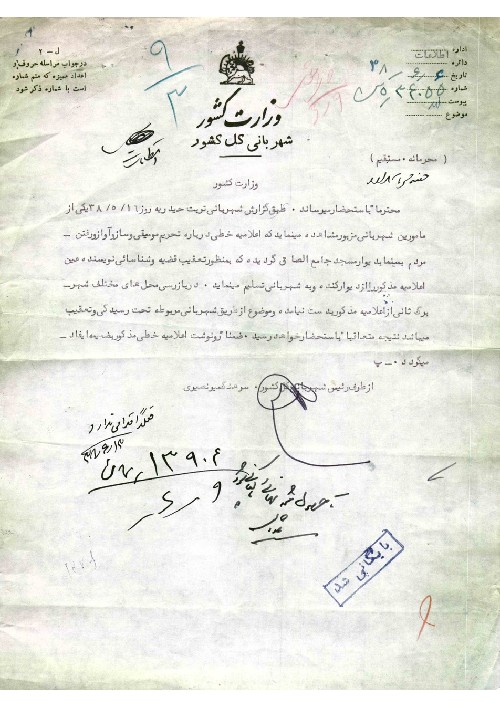 ل - ۲
در جواب مراسله حروف و
اعداد ممیزه که متم شماره
است با شماره ذکر شود
وزارت کشور
شهربانی کل کشور
اداره
دائره اطلاعات
تاریخ
شماره
پیوست
موضوع
۹
۳
( محرمانه - مستقیم )
وزارت کشور
محترما" باستحضار میرساند ۰ طبق گزارش شهربانی تربت حیدریه روز ۳۸/۵/۱۶ یکی از
مامورین شهربانی مزبور مشاهده مینماید که اعلامیه خطی درباره تحریم موسیقی و ساز و آواز و رفتن
مردم بسینما بدیوار مسجد جامع الصاق گردیده که بمنظور تعقیب قضیه و شناسائی نویسنده عین
اعلامیه مذکور را از دیوار کنده و به شهربانی تسلیم مینماید ۰ در بازرسی محل های مختلف شهر
برگ ثانی از اعلامیه مذکور بدست نیامده و موضوع از طریق شهربانی مربوطه تحت رسیدگی و تعقیب
میباشد نتیجه متعاقبا" باستحضار خواهد رسید ۰ ضمنا" رونوشت اعلامیه خطی مذکور بضمیمه ایفاد
میگردد ۰ پ
از طرف رئیس شهربانی کل کشور ۰ سرلشکر نصیری
فعلا اقدامی ندارد
۱۳۹۰۶
بایگانی شد